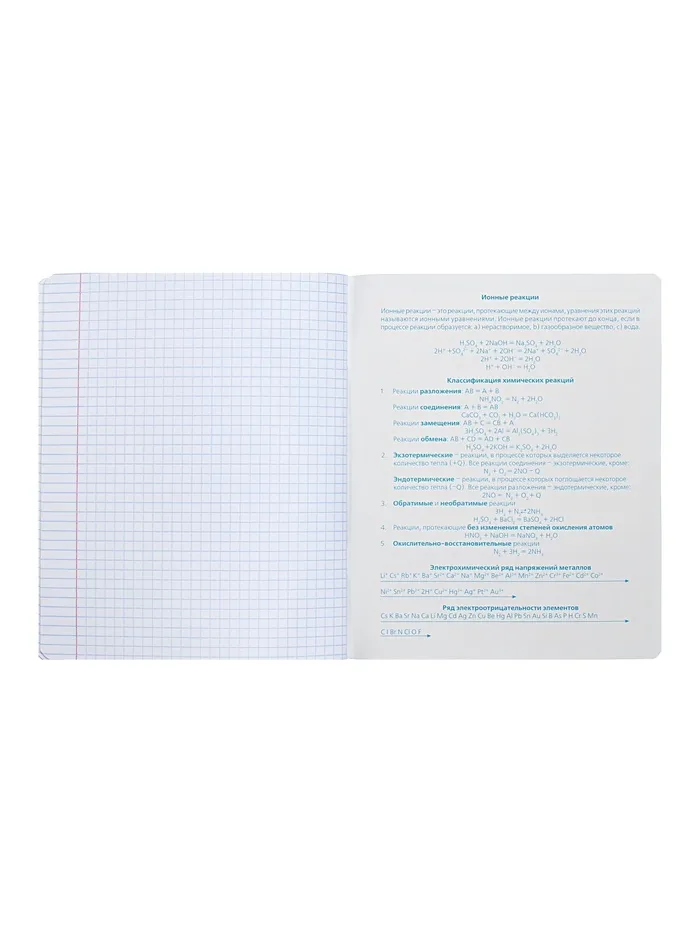 Ионные реакции
Ионные реакции – это реакции, протекающие между ионами, уравнения этих реакций
называются ионными уравнениями. Ионные реакции протекают до конца, если в
процессе реакции образуется: a) нерастворимое; b) газообразное вещество; c) вода.
H₂SO₄ + 2NaOH = Na₂SO₄ + 2H₂O
2H⁺ + SO₄²⁻ + 2Na⁺ + 2OH⁻ = 2Na⁺ + SO₄²⁻ + 2H₂O
2H⁺ + 2OH⁻ = 2H₂O
H⁺ + OH⁻ = H₂O
Классификация химических реакций
1. Реакции разложения: AB = A + B
NH₄NO₂ = N₂ + 2H₂O
Реакции соединения: A + B = AB
CaCO₃ + CO₂ + H₂O = Ca(HCO₃)₂
Реакции замещения: AB + C = CB + A
3H₂SO₄ + 2Al = Al₂(SO₄)₃ + 3H₂
Реакции обмена: AB + CD = AD + CB
H₂SO₄ + 2KOH = K₂SO₄ + 2H₂O
2. Экзотермические – реакции, в процессе которых выделяется некоторое
количество тепла (+Q). Все реакции соединения – экзотермические, кроме:
N₂ + O₂ = 2NO – Q
Эндотермические – реакции, в процессе которых поглощается некоторое
количество тепла (–Q). Все реакции разложения – эндотермические, кроме:
2NO = N₂ + O₂ + Q
3. Обратимые и необратимые реакции
3H₂ + N₂ ⇄ 2NH₃
H₂SO₄ + BaCl₂ = BaSO₄ + 2HCl
4. Реакции, протекающие без изменения степеней окисления атомов
HNO₃ + NaOH = NaNO₃ + H₂O
5. Окислительно-восстановительные реакции
N₂ + 3H₂ = 2NH₃
Электрохимический ряд напряжений металлов
Li⁺ Cs⁺ Rb⁺ K⁺ Ba²⁺ Sr²⁺ Ca²⁺ Na⁺ Mg²⁺ Be²⁺ Al³⁺ Mn²⁺ Zn²⁺ Cr³⁺ Fe²⁺ Cd²⁺ Co²⁺
Ni²⁺ Sn²⁺ Pb²⁺ 2H⁺ Cu²⁺ Hg²⁺ Ag⁺ Pt²⁺ Au³⁺
Ряд электроотрицательности элементов
Cs K Ba Sr Na Ca Li Mg Cd Ag Zn Cu Be Hg Al Pb Sn Au Si B As P H Cr S Mn
C I Br N Cl O F